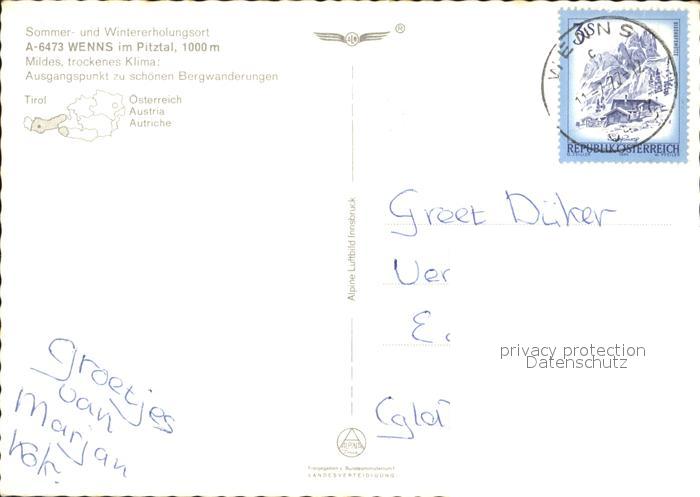 Sommer- und Wintererholungsort
A-6473 WENNS im Pitztal, 1000 m
Mildes, trockenes Klima:
Ausgangspunkt zu schönen Bergwanderungen
Tirol
Österreich
Austria
Autriche
®
WENNS
REPUBLIK ÖSTERREICH
Alpine Luftbild Innsbruck
Greet Düker
Ver
E
privacy protection
Datenschutz
Groetjes
van
Marjan
ALPINE
Freigegeben v. Bundesministerium f.
LANDESVERTEIDIGUNG